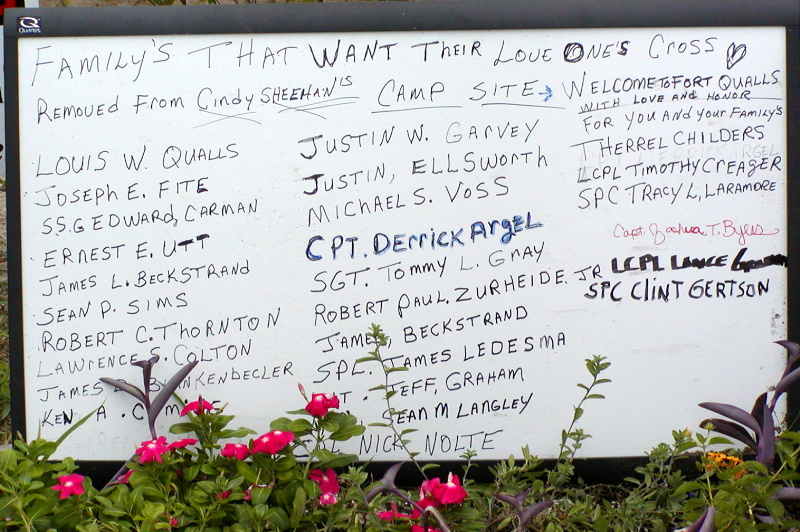 Quartet
FAMILY'S THAT WANT THEIR LOVE ONE'S CROSS
REMOVED FROM CINDY SHEEHAN'S CAMP SITE →
LOUIS W. QUALLS
JOSEPH E. FITE
SS.G EDWARD, CARMAN
ERNEST E. UTT
JAMES L. BECKSTRAND
SEAN P. SIMS
ROBERT C. THORNTON
LAWRENCE S. COLTON
JAMES
KEN A.
JUSTIN W. GARVEY
JUSTIN, ELLSWORTH
MICHAEL S. VOSS
CPT. DERRICK ARGEL
SGT. TOMMY L. GRAY
ROBERT PAUL. ZURHEIDE JR
JAMES, BECKSTRAND
SPL. JAMES LEDESMA
JEFF, GRAHAM
SEAN M LANGLEY
NICK NOLTE
WELCOME TO FORT QUALLS
WITH LOVE AND HONOR
FOR YOU AND YOUR FAMILY'S
THERREL CHILDERS
LCPL TIMOTHY CREAGER
SPC TRACY L, LARAMORE
Capt. Joshua T. Byers
LCPL LANCE
SPC CLINT GERTSON